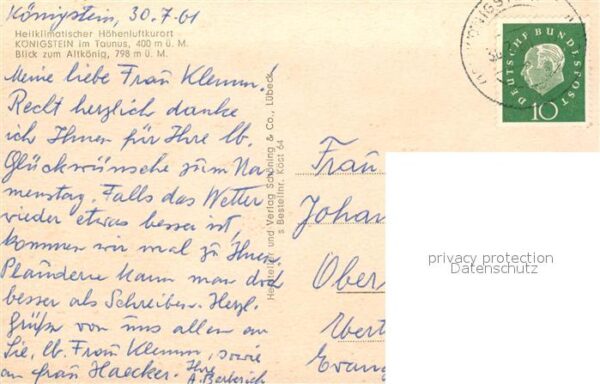 Königstein, 30.7.61
Heilklimatischer Höhenluftkurort
KÖNIGSTEIN im Taunus, 400 m ü. M.
Blick zum Altkönig, 798 m ü. M.
Meine liebe Frau Klemm!
Recht herzlich danke
ich Ihnen für Ihre lb.
Glückwünsche zum Na-
menstag. Falls das Wetter
wieder etwas besser ist,
kommen wir mal zu Ihnen.
Plaudern kann man doch
besser als Schreiben. Herzl.
Grüße von uns allen an
Sie, lb. Frau Klemm, sowie
an Frau Haecker. Ihre
A. Berberich
Hersteller und Verlag Schöning & Co., Lübeck
s Bestellnr. Köst 64
DEUTSCHE BUNDESPOST
10
Frau
Johan
Ober
Evang
privacy protection
Datenschutz